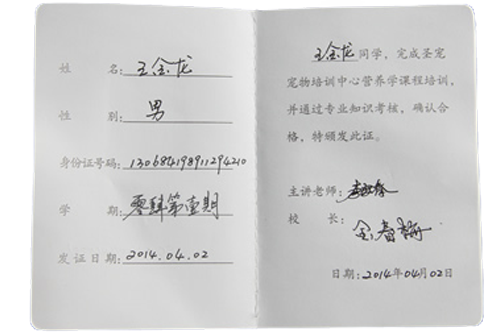 姓 名：王金龙
性 别：男
身份证号码：130684198911294210
学 期：零肆第壹期
发证日期：2014.04.02
王金龙同学，完成圣宠
宠物培训中心营养学课程培训，
并通过专业知识考核，确认合
格，特颁发此证。
主讲老师：
校 长：金春梅
日期：2014年04月02日